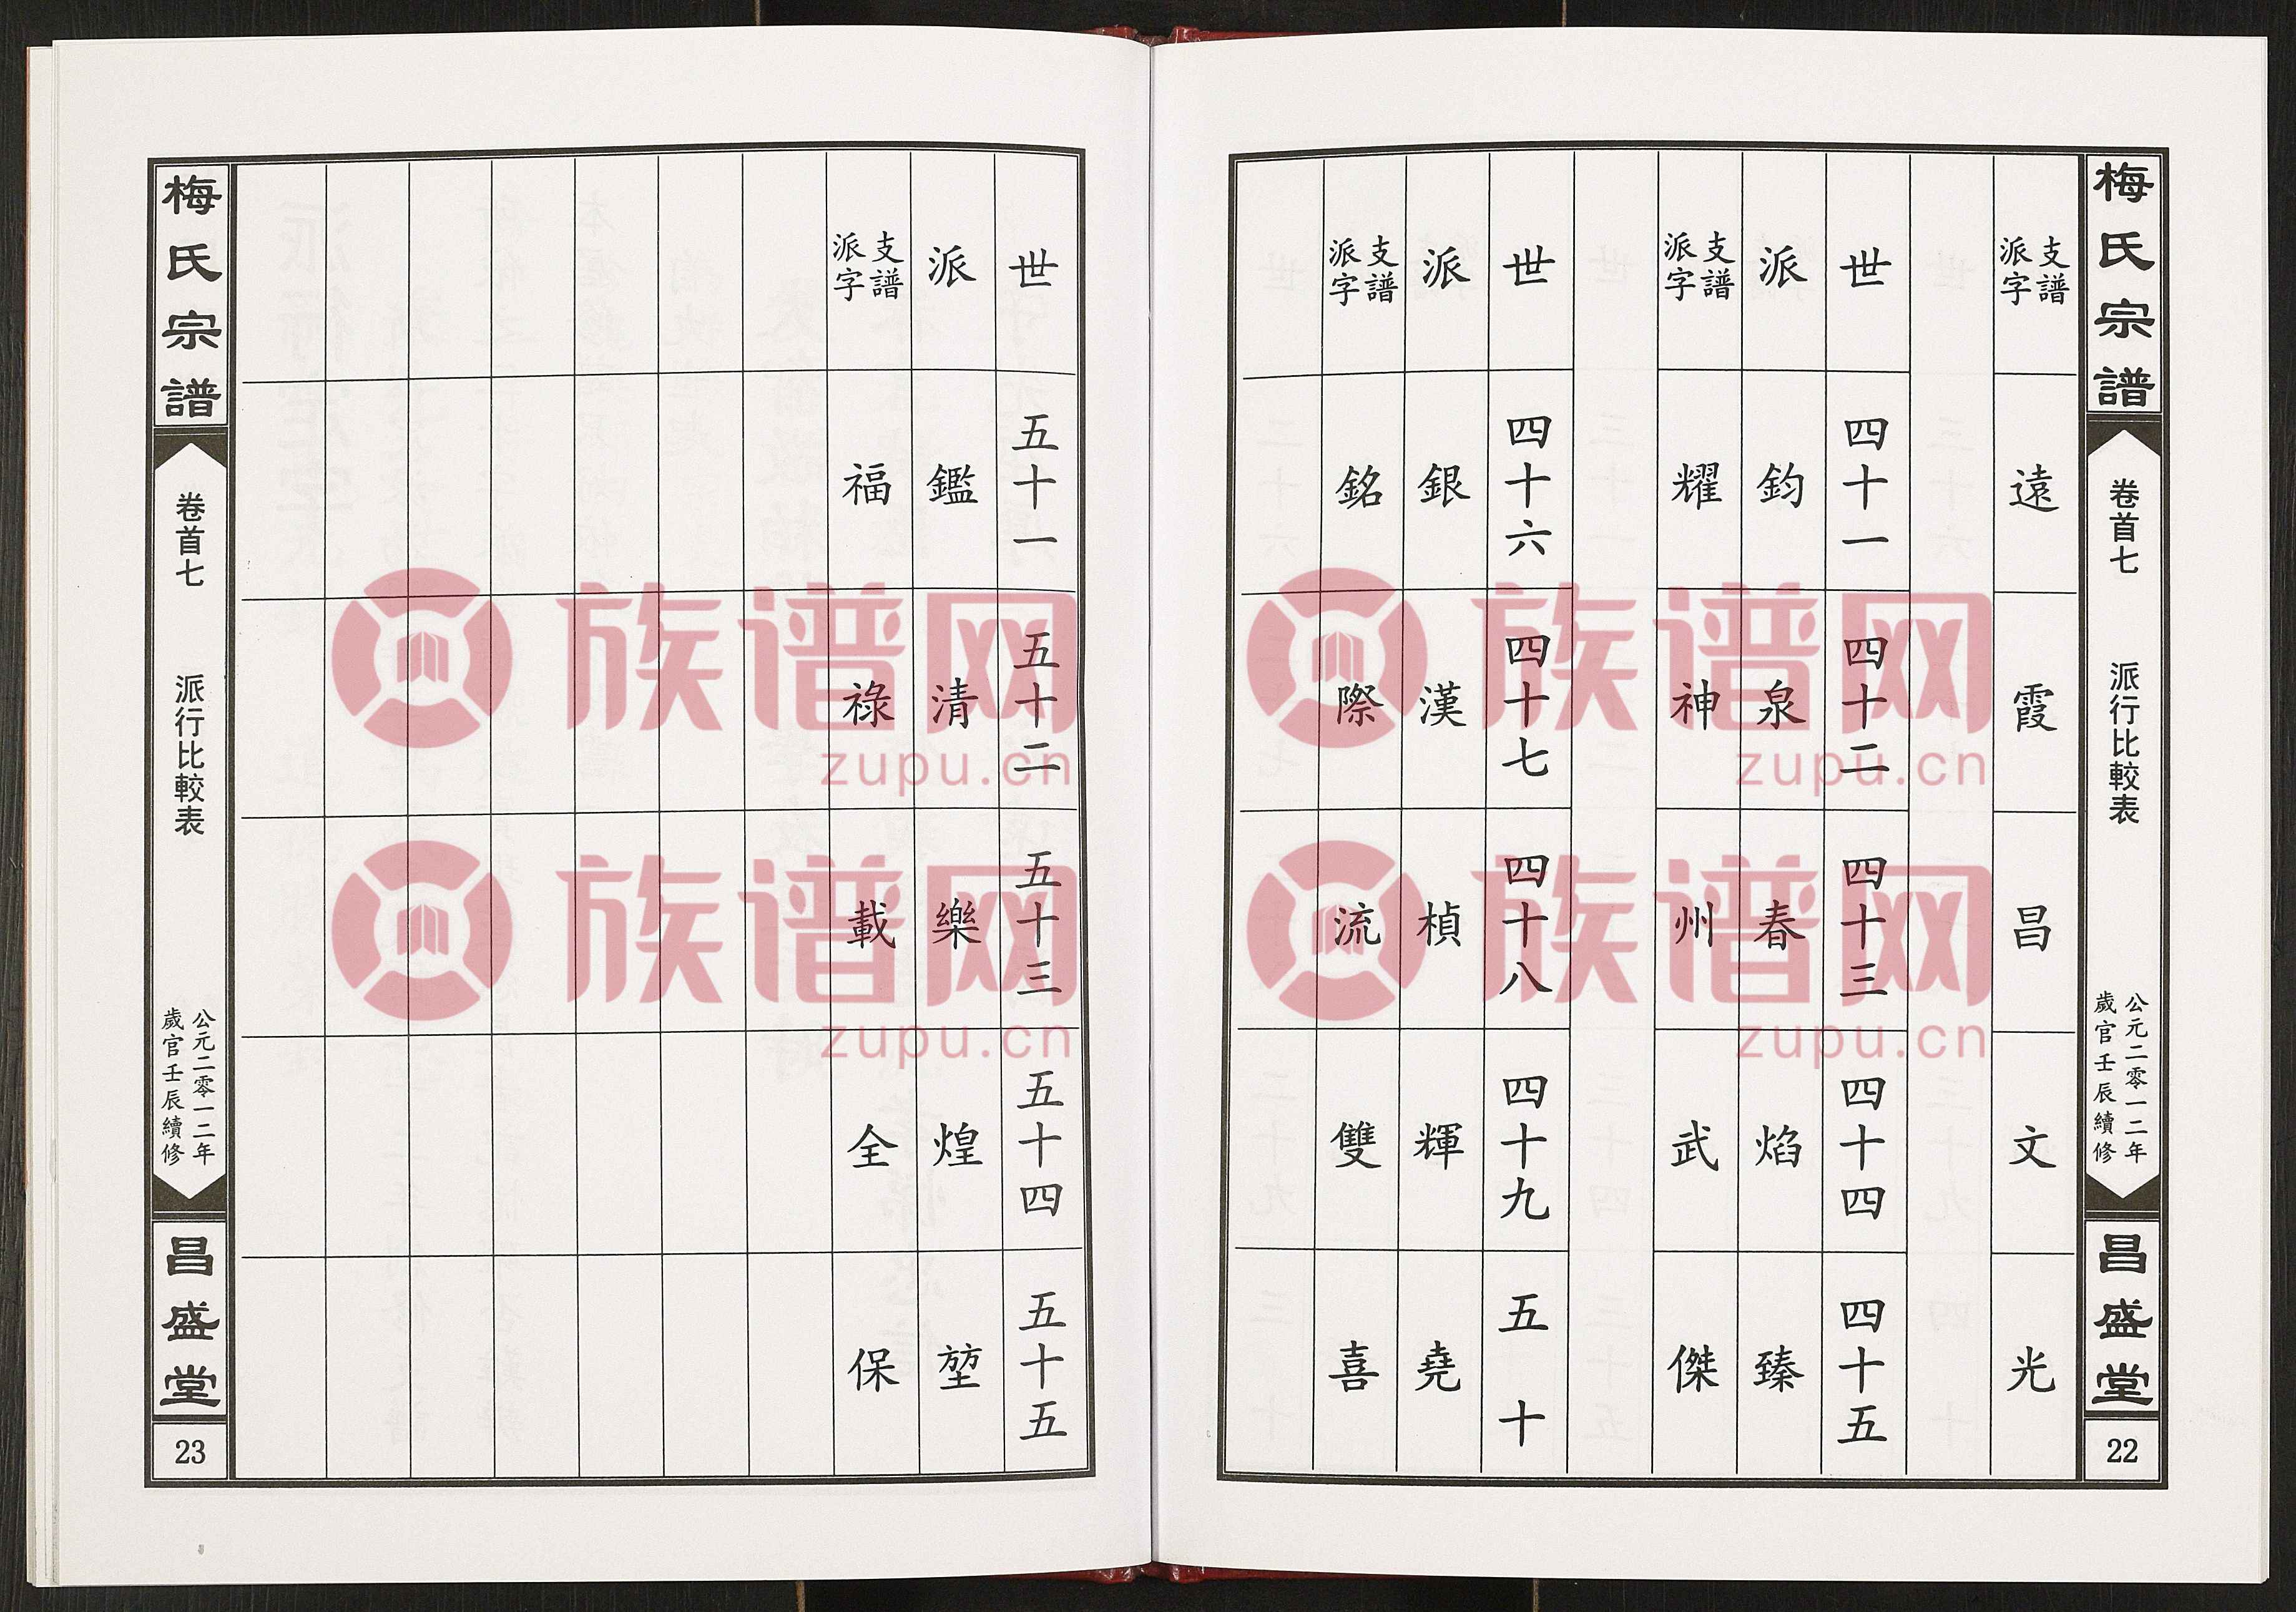 梅氏宗譜
卷首七
派行比較表
公元二零一二年
歲官壬辰續修
昌盛堂
22
支譜派字 遠 霞 昌 文 光
世 四十一 四十二 四十三 四十四 四十五
派 鈞 泉 春 焰 臻
支譜派字 耀 神 州 武 傑
世 四十六 四十七 四十八 四十九 五十
派 銀 漢 楨 輝 堯
支譜派字 銘 際 流 雙 喜
世 五十一 五十二 五十三 五十四 五十五
派 鑑 清 樂 煌 堃
支譜派字 福 祿 載 全 保
梅氏宗譜
卷首七
派行比較表
公元二零一二年
歲官壬辰續修
昌盛堂
23
族谱网
zupu.cn
族谱网
zupu.cn
族谱网
zupu.cn
族谱网
zupu.cn